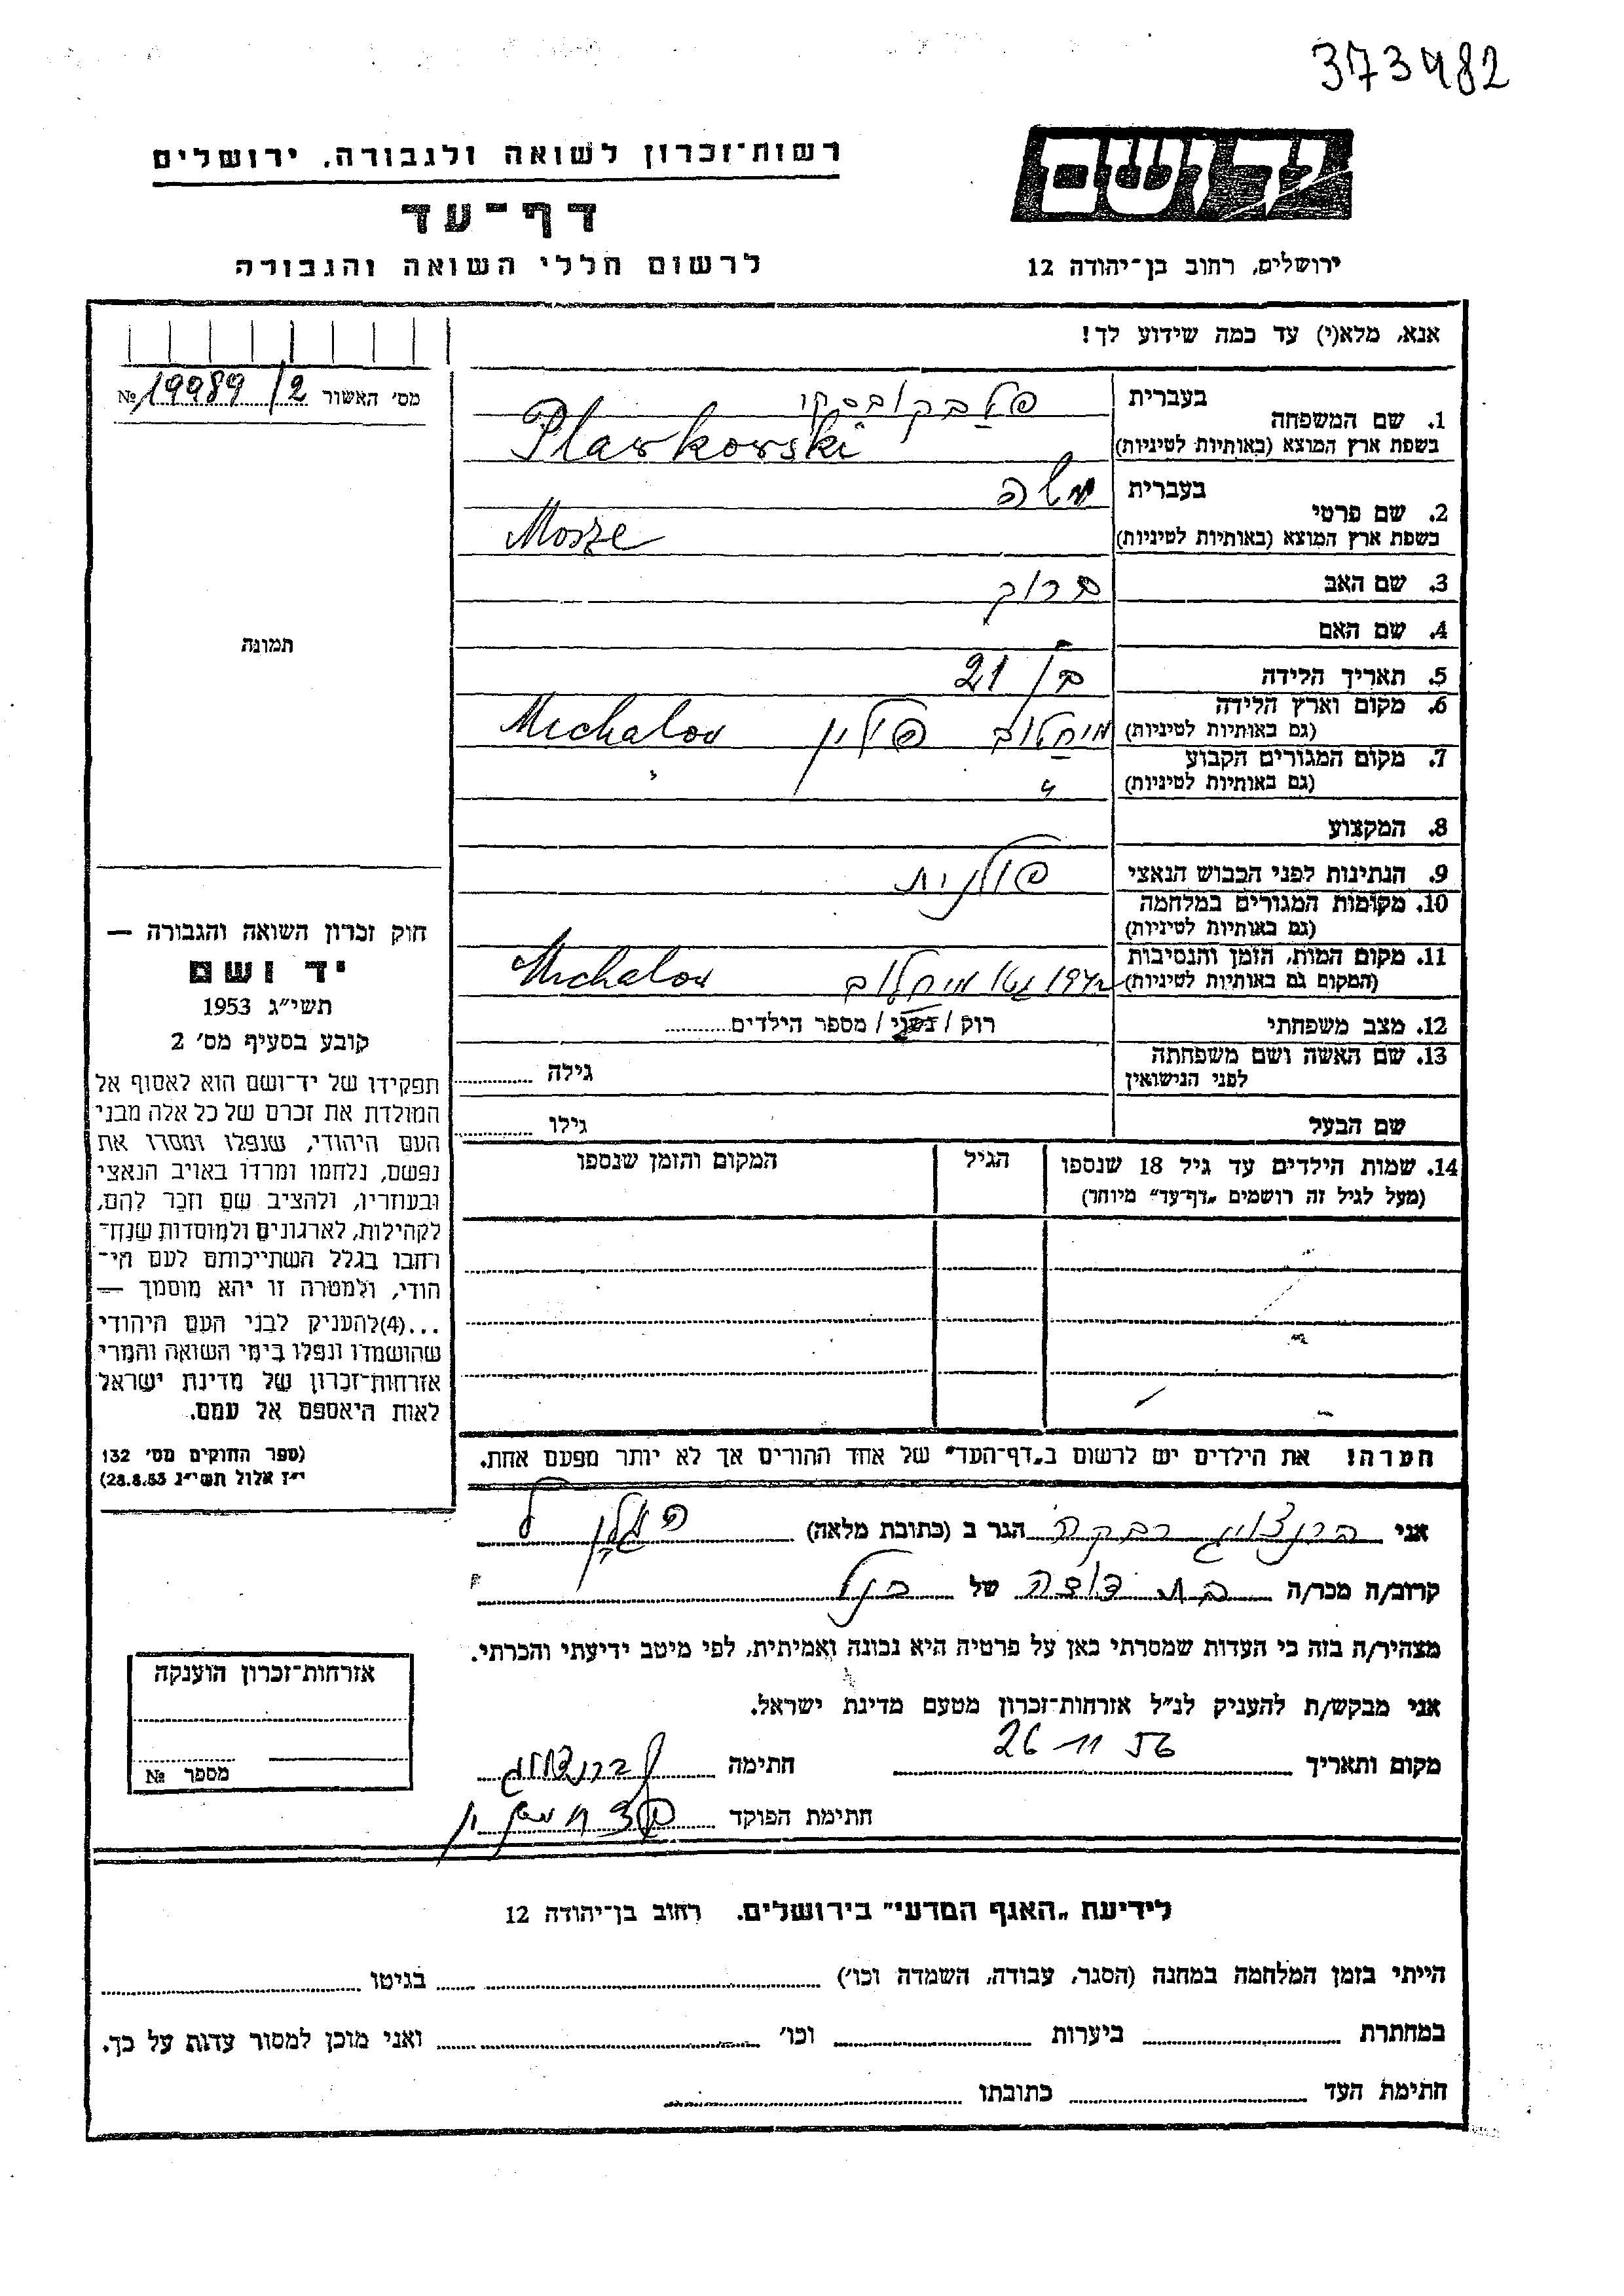 373482
יד ושם
רשות־זכרון לשואה ולגבורה, ירושלים
דף־עד
לרשום חללי השואה והגבורה
ירושלים, רחוב בן־יהודה 12
אנא, מלא(י) עד כמה שידוע לך!
מס׳ האשור 19989/2 №
1. שם המשפחה
בעברית פלבקובסקי
בשפת ארץ המוצא (באותיות לטיניות) Plawkowski
2. שם פרטי
בעברית משה
בשפת ארץ המוצא (באותיות לטיניות) Mosze
3. שם האב ברוך
4. שם האם
5. תאריך הלידה בן 21
6. מקום וארץ הלידה
(גם באותיות לטיניות) מיחלוב פולין Michalov
7. מקום המגורים הקבוע
(גם באותיות לטיניות) "
8. המקצוע
9. הנתינות לפני הכבוש הנאצי פולנית
10. מקומות המגורים במלחמה
(גם באותיות לטיניות)
11. מקום המות, הזמן והנסיבות
(המקום גם באותיות לטיניות) 1942 גטו מיחלוב Michalov
12. מצב משפחתי רוק / נשוי / מספר הילדים
13. שם האשה ושם משפחתה
לפני הנישואין גילה
שם הבעל גילו
14. שמות הילדים עד גיל 18 שנספו הגיל המקום והזמן שנספו
(מעל לגיל זה רושמים „דף־עד״ מיוחד)
תמונה
חוק זכרון השואה והגבורה —
יד ושם
תשי״ג 1953
קובע בסעיף מס׳ 2
תפקידו של יד־ושם הוא לאסוף אל
המולדת את זכרם של כל אלה מבני
העם היהודי, שנפלו ומסרו את
נפשם, נלחמו ומרדו באויב הנאצי
ובעוזריו, ולהציב שם וזכר להם,
לקהילות, לארגונים ולמוסדות שנח־
רבו בגלל השתייכותם לעם הי־
הודי, ולמטרה זו יהא מוסמך —
...(4)להעניק לבני העם היהודי
שהושמדו ונפלו בימי השואה והמרי
אזרחות־זכרון של מדינת ישראל
לאות היאספם אל עמם.
(ספר החוקים מס׳ 132
י״ז אלול תשי״ג 28.8.53)
הערה! את הילדים יש לרשום ב„דף־העד״ של אחד ההורים אך לא יותר מפעם אחת.
אני רבקה הגר ב (כתובת מלאה)
קרוב/ה מכר/ה בת דודה של הנ״ל
מצהיר/ה בזה כי העדות שמסרתי כאן על פרטיה היא נכונה ואמיתית, לפי מיטב ידיעתי והכרתי.
אני מבקש/ת להעניק לנ״ל אזרחות־זכרון מטעם מדינת ישראל.
מקום ותאריך 26 11 56 חתימה
חתימת הפוקד
אזרחות־זכרון הוענקה
מספר №
לידיעת „האגף המדעי״ בירושלים. רחוב בן־יהודה 12
הייתי בזמן המלחמה במחנה (הסגר, עבודה, השמדה וכו׳) בגיטו
במחתרת ביערות וכו׳ ואני מוכן למסור עדות על כך.
חתימת העד כתובתו